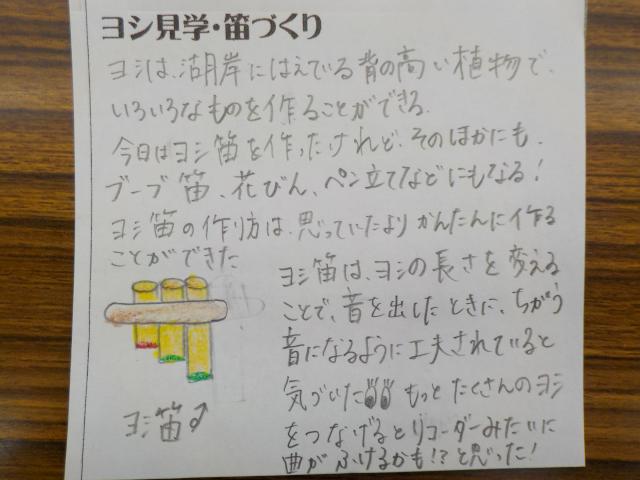 ヨシ見学・笛づくり
ヨシは、湖岸にはえている背の高い植物で、
いろいろなものを作ることができる。
今日はヨシ笛を作ったけれど、そのほかにも、
ブーブ笛、花びん、ペン立てなどにもなる!
ヨシ笛の作り方は、思っていたよりかんたんに作る
ことができた
ヨシ笛は、ヨシの長さを変える
ことで、音を出したときに、ちがう
音になるように工夫されていると
気づいた!! もっとたくさんのヨシ
をつなげるとリコーダーみたいに
曲がふけるかも!?と思った!
ヨシ笛